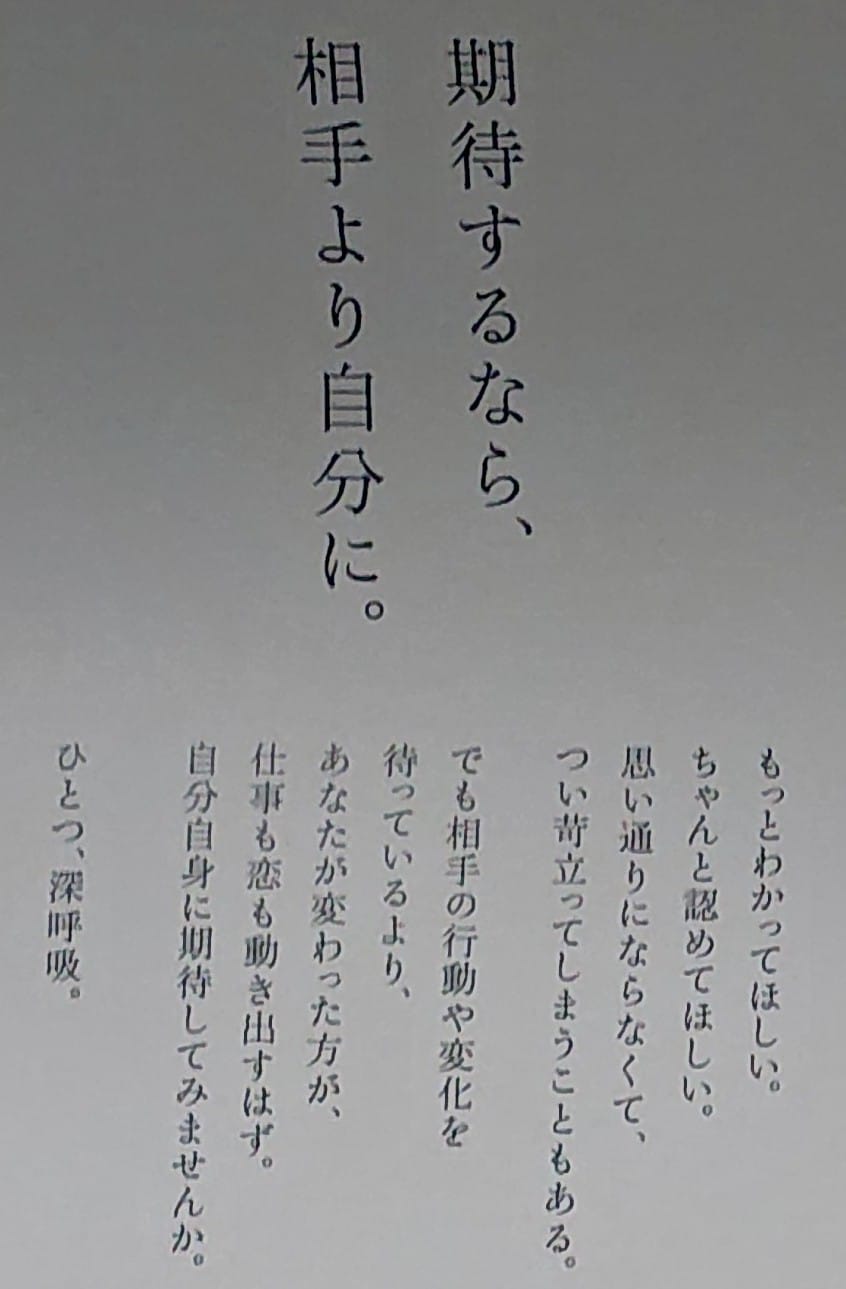 期待するなら、
相手より自分に。
もっとわかってほしい。
ちゃんと認めてほしい。
思い通りにならなくて、
つい苛立ってしまうこともある。
でも相手の行動や変化を
待っているより、
あなたが変わった方が、
仕事も恋も動き出すはず。
自分自身に期待してみませんか。
ひとつ、深呼吸。